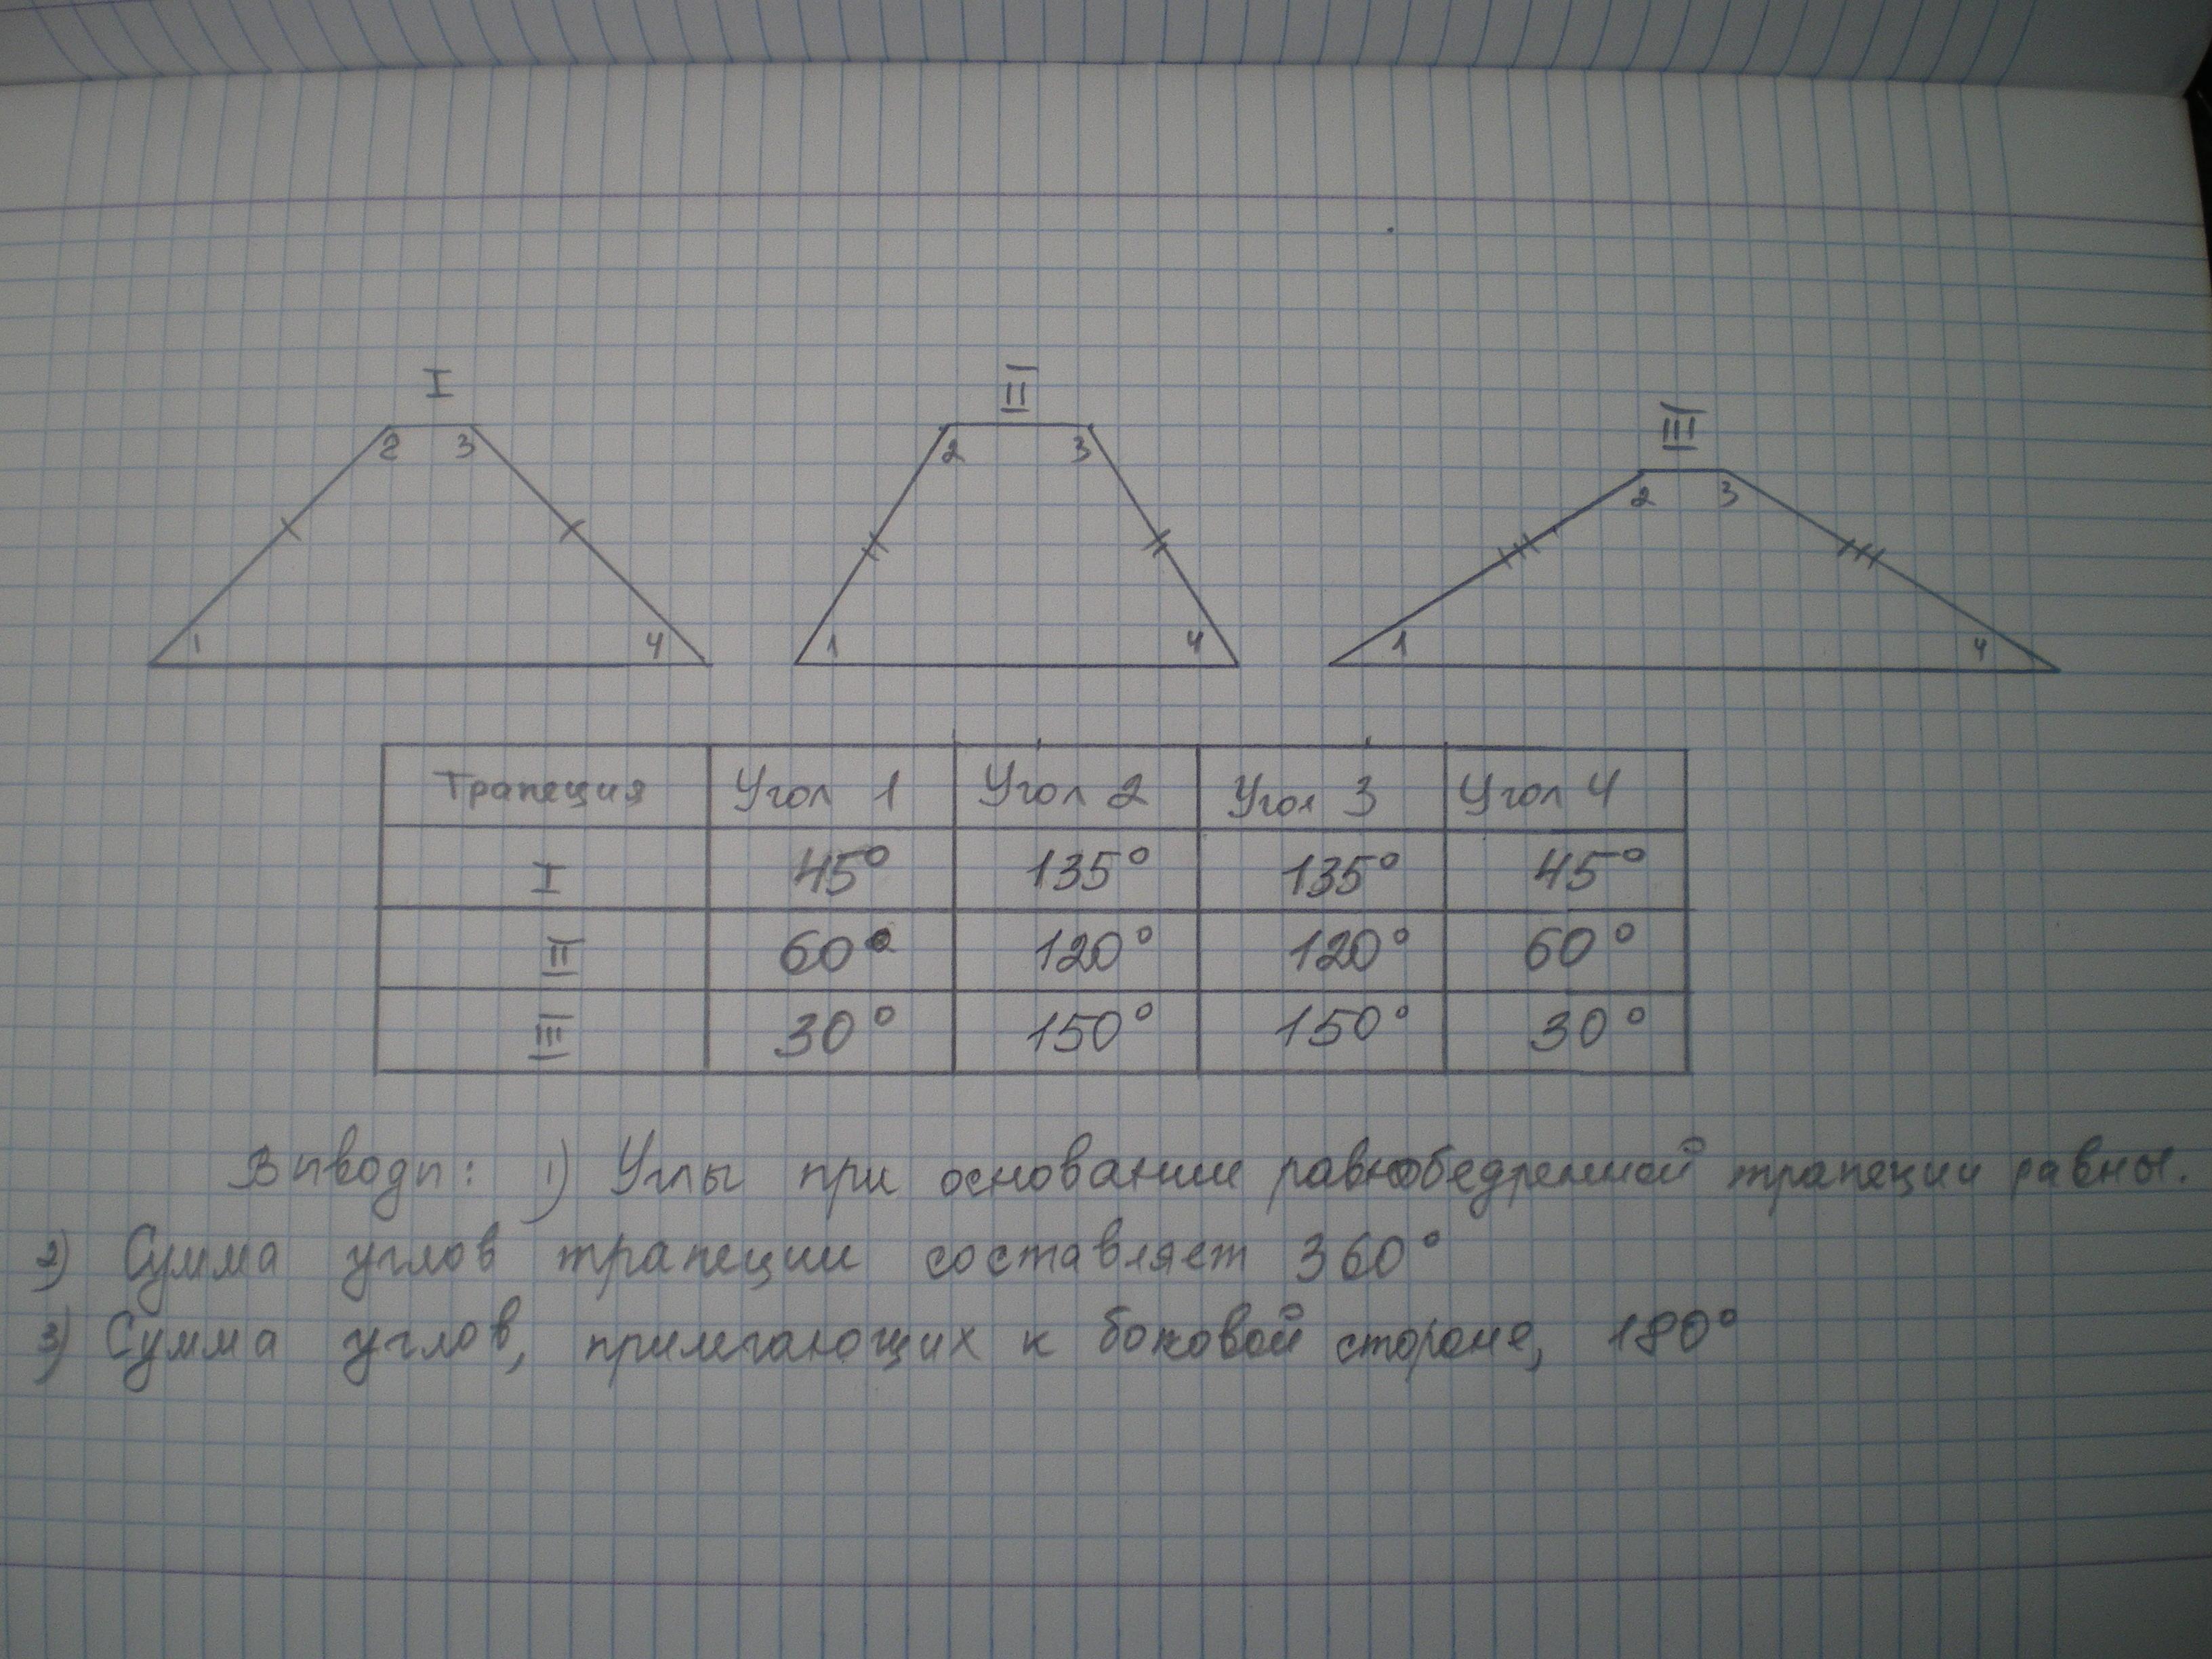 I II III
2 3 2 3 2 3
1 4 1 4 1 4
Трапеция Угол 1 Угол 2 Угол 3 Угол 4
I 45° 135° 135° 45°
II 60° 120° 120° 60°
III 30° 150° 150° 30°
Выводы: 1) Углы при основании равнобедренной трапеции равны.
2) Сумма углов трапеции составляет 360°
3) Сумма углов, прилегающих к боковой стороне, 180°